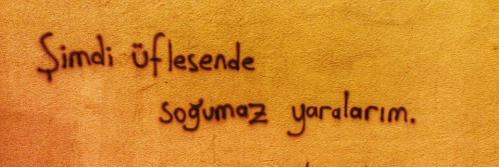 Şimdi üflesende
soğumaz yaralarım.